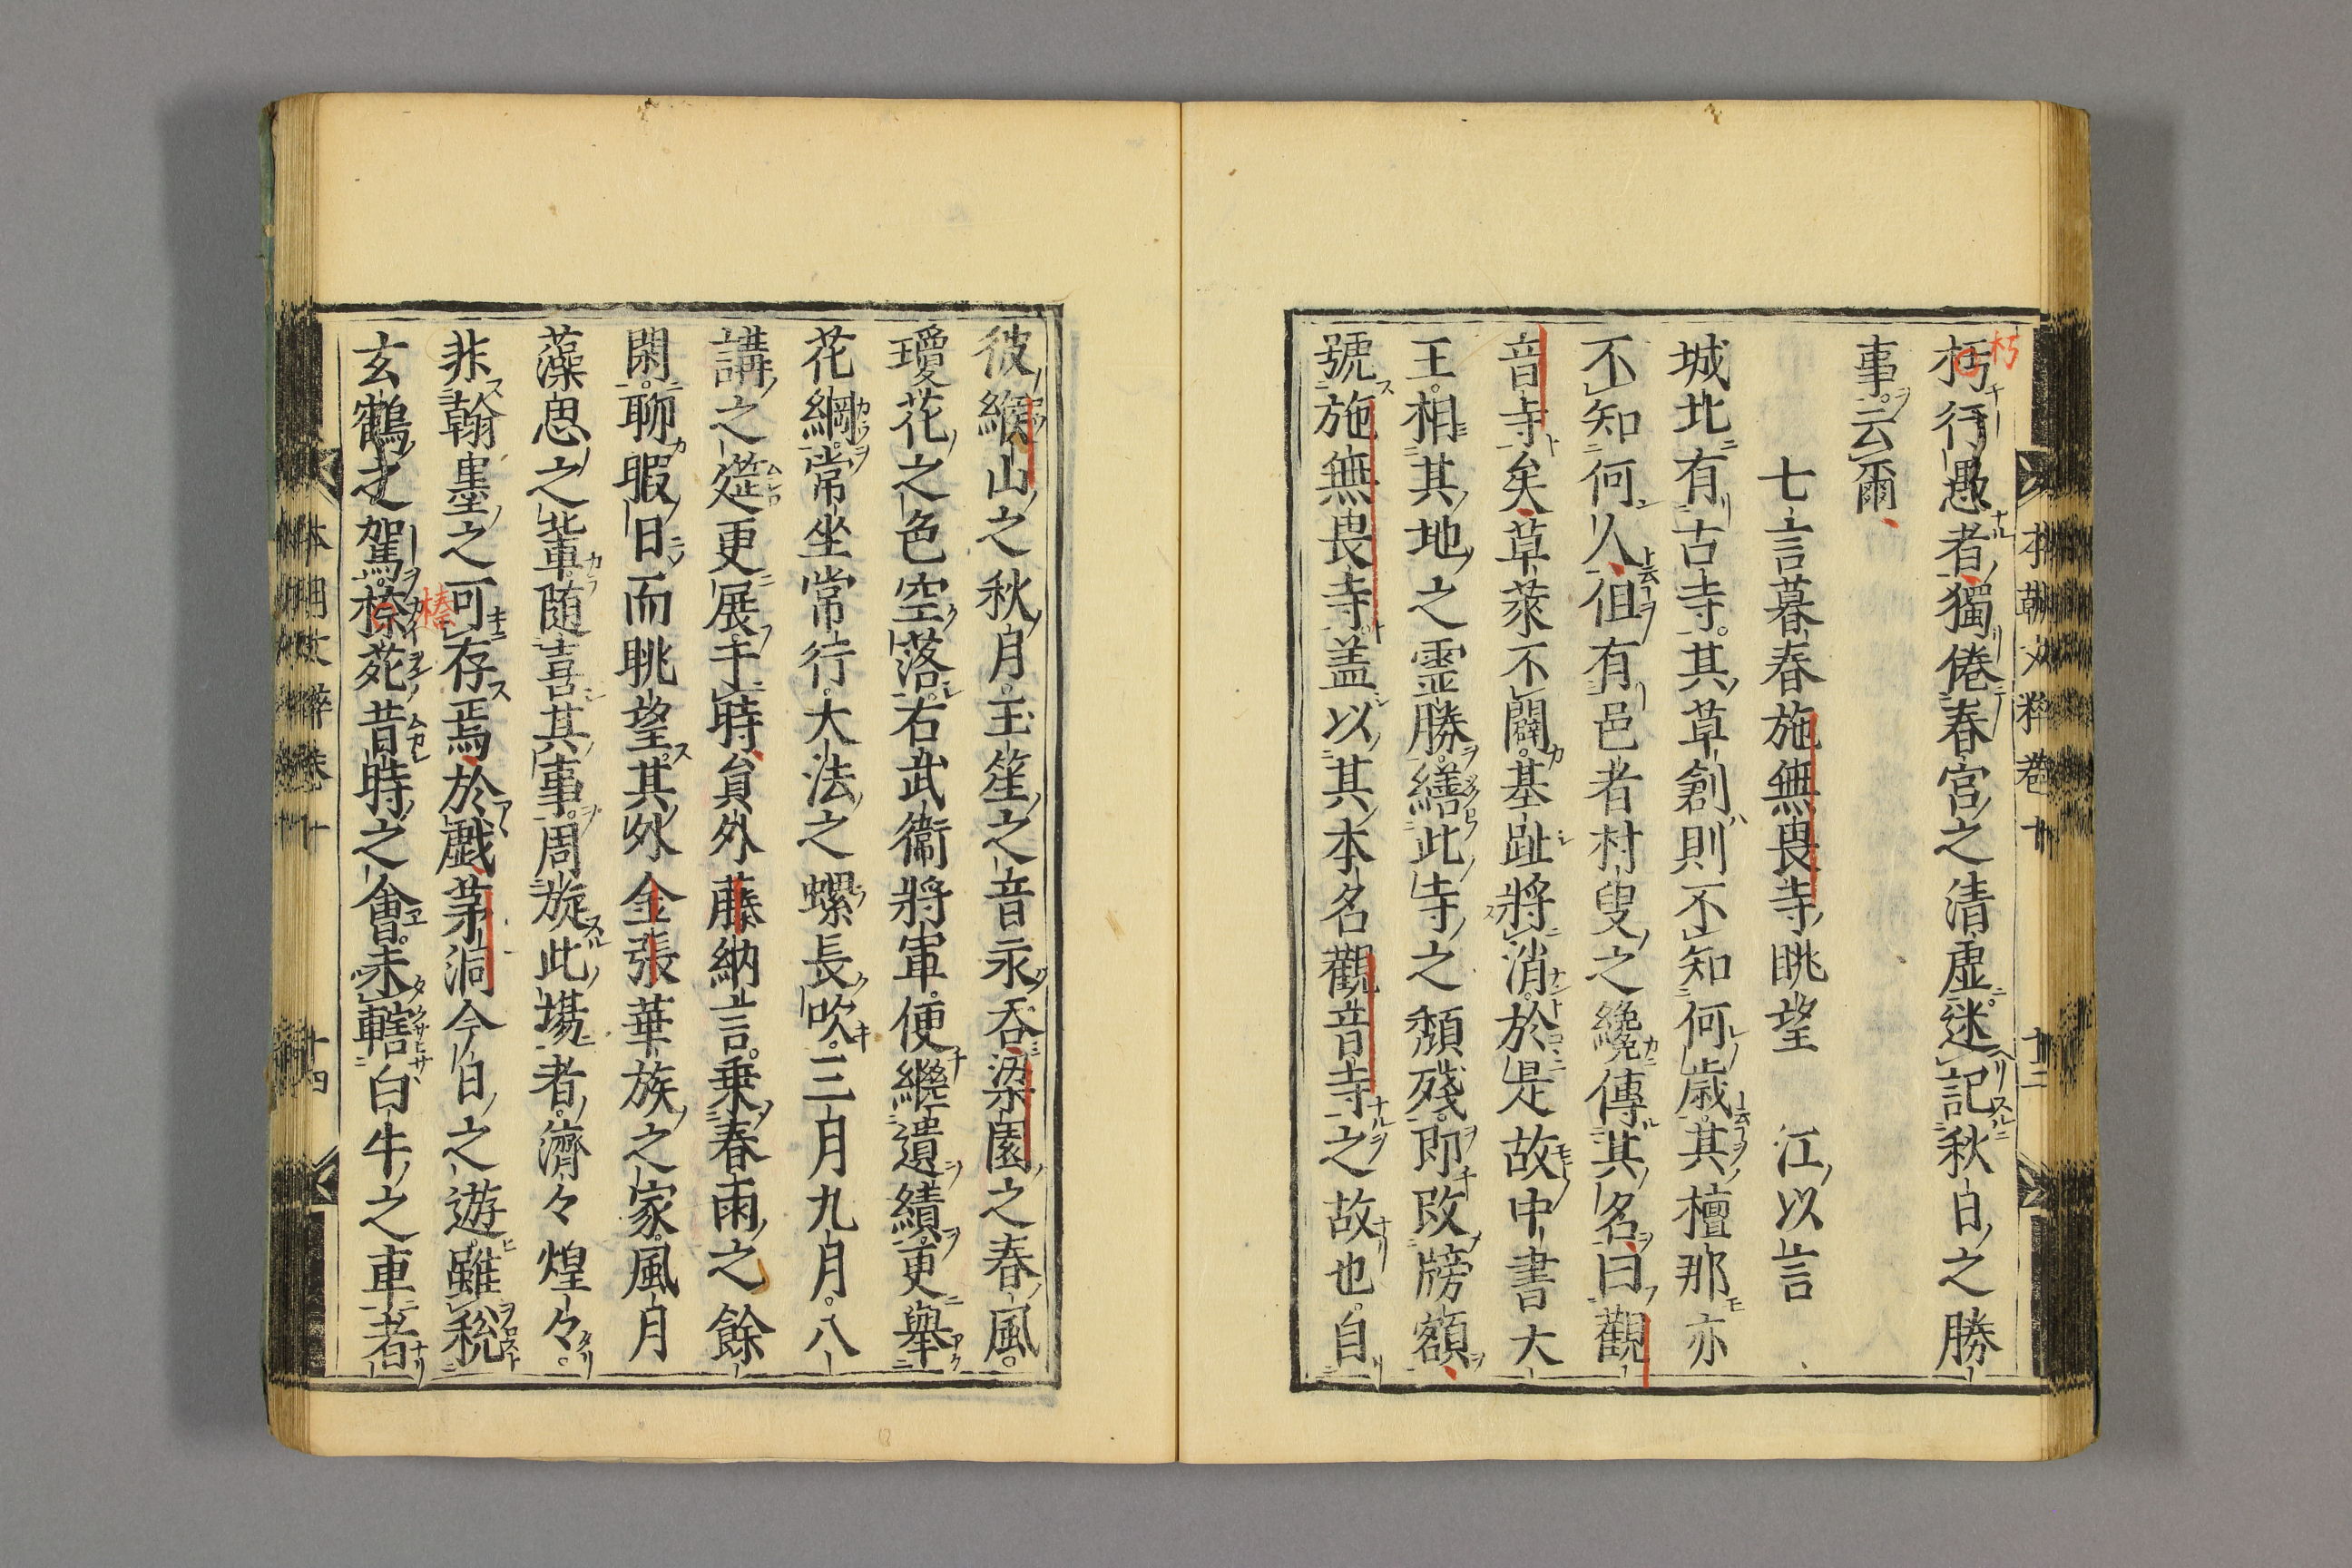 朽行愚者獨倦春宮之清虛迷記秋日之勝
事云爾
七言暮春施無畏寺眺望 江以言
城北有古寺其草創則不知何歲其檀那亦
不知何人徂有邑者村叟之纔傳其名曰觀
音寺矣草萊不闢基趾將消於是故中書大
王相其地之霊勝繕此寺之頽殘即改牓額
號施無畏寺盖以其本名觀音寺之故也自
彼緱山之秋月玉笙之音永呑梁園之春風
瓊花之色空落右武衞將軍便繼遺績更舉
花綱常坐常行大法之螺長吹三月九月八
講之莚更展于時員外藤納言乗春雨之餘
閑聊暇日而眺望其外金張華族之家風月
藻思之輩随喜其事周旋此塲者濟々煌々
非翰墨之可存焉於戯茅洞今日之遊雖税
玄鶴之駕㮈苑昔時之會未轄白牛之車者
朽
本朝文粹卷十
十三
本朝文粹卷十
十四